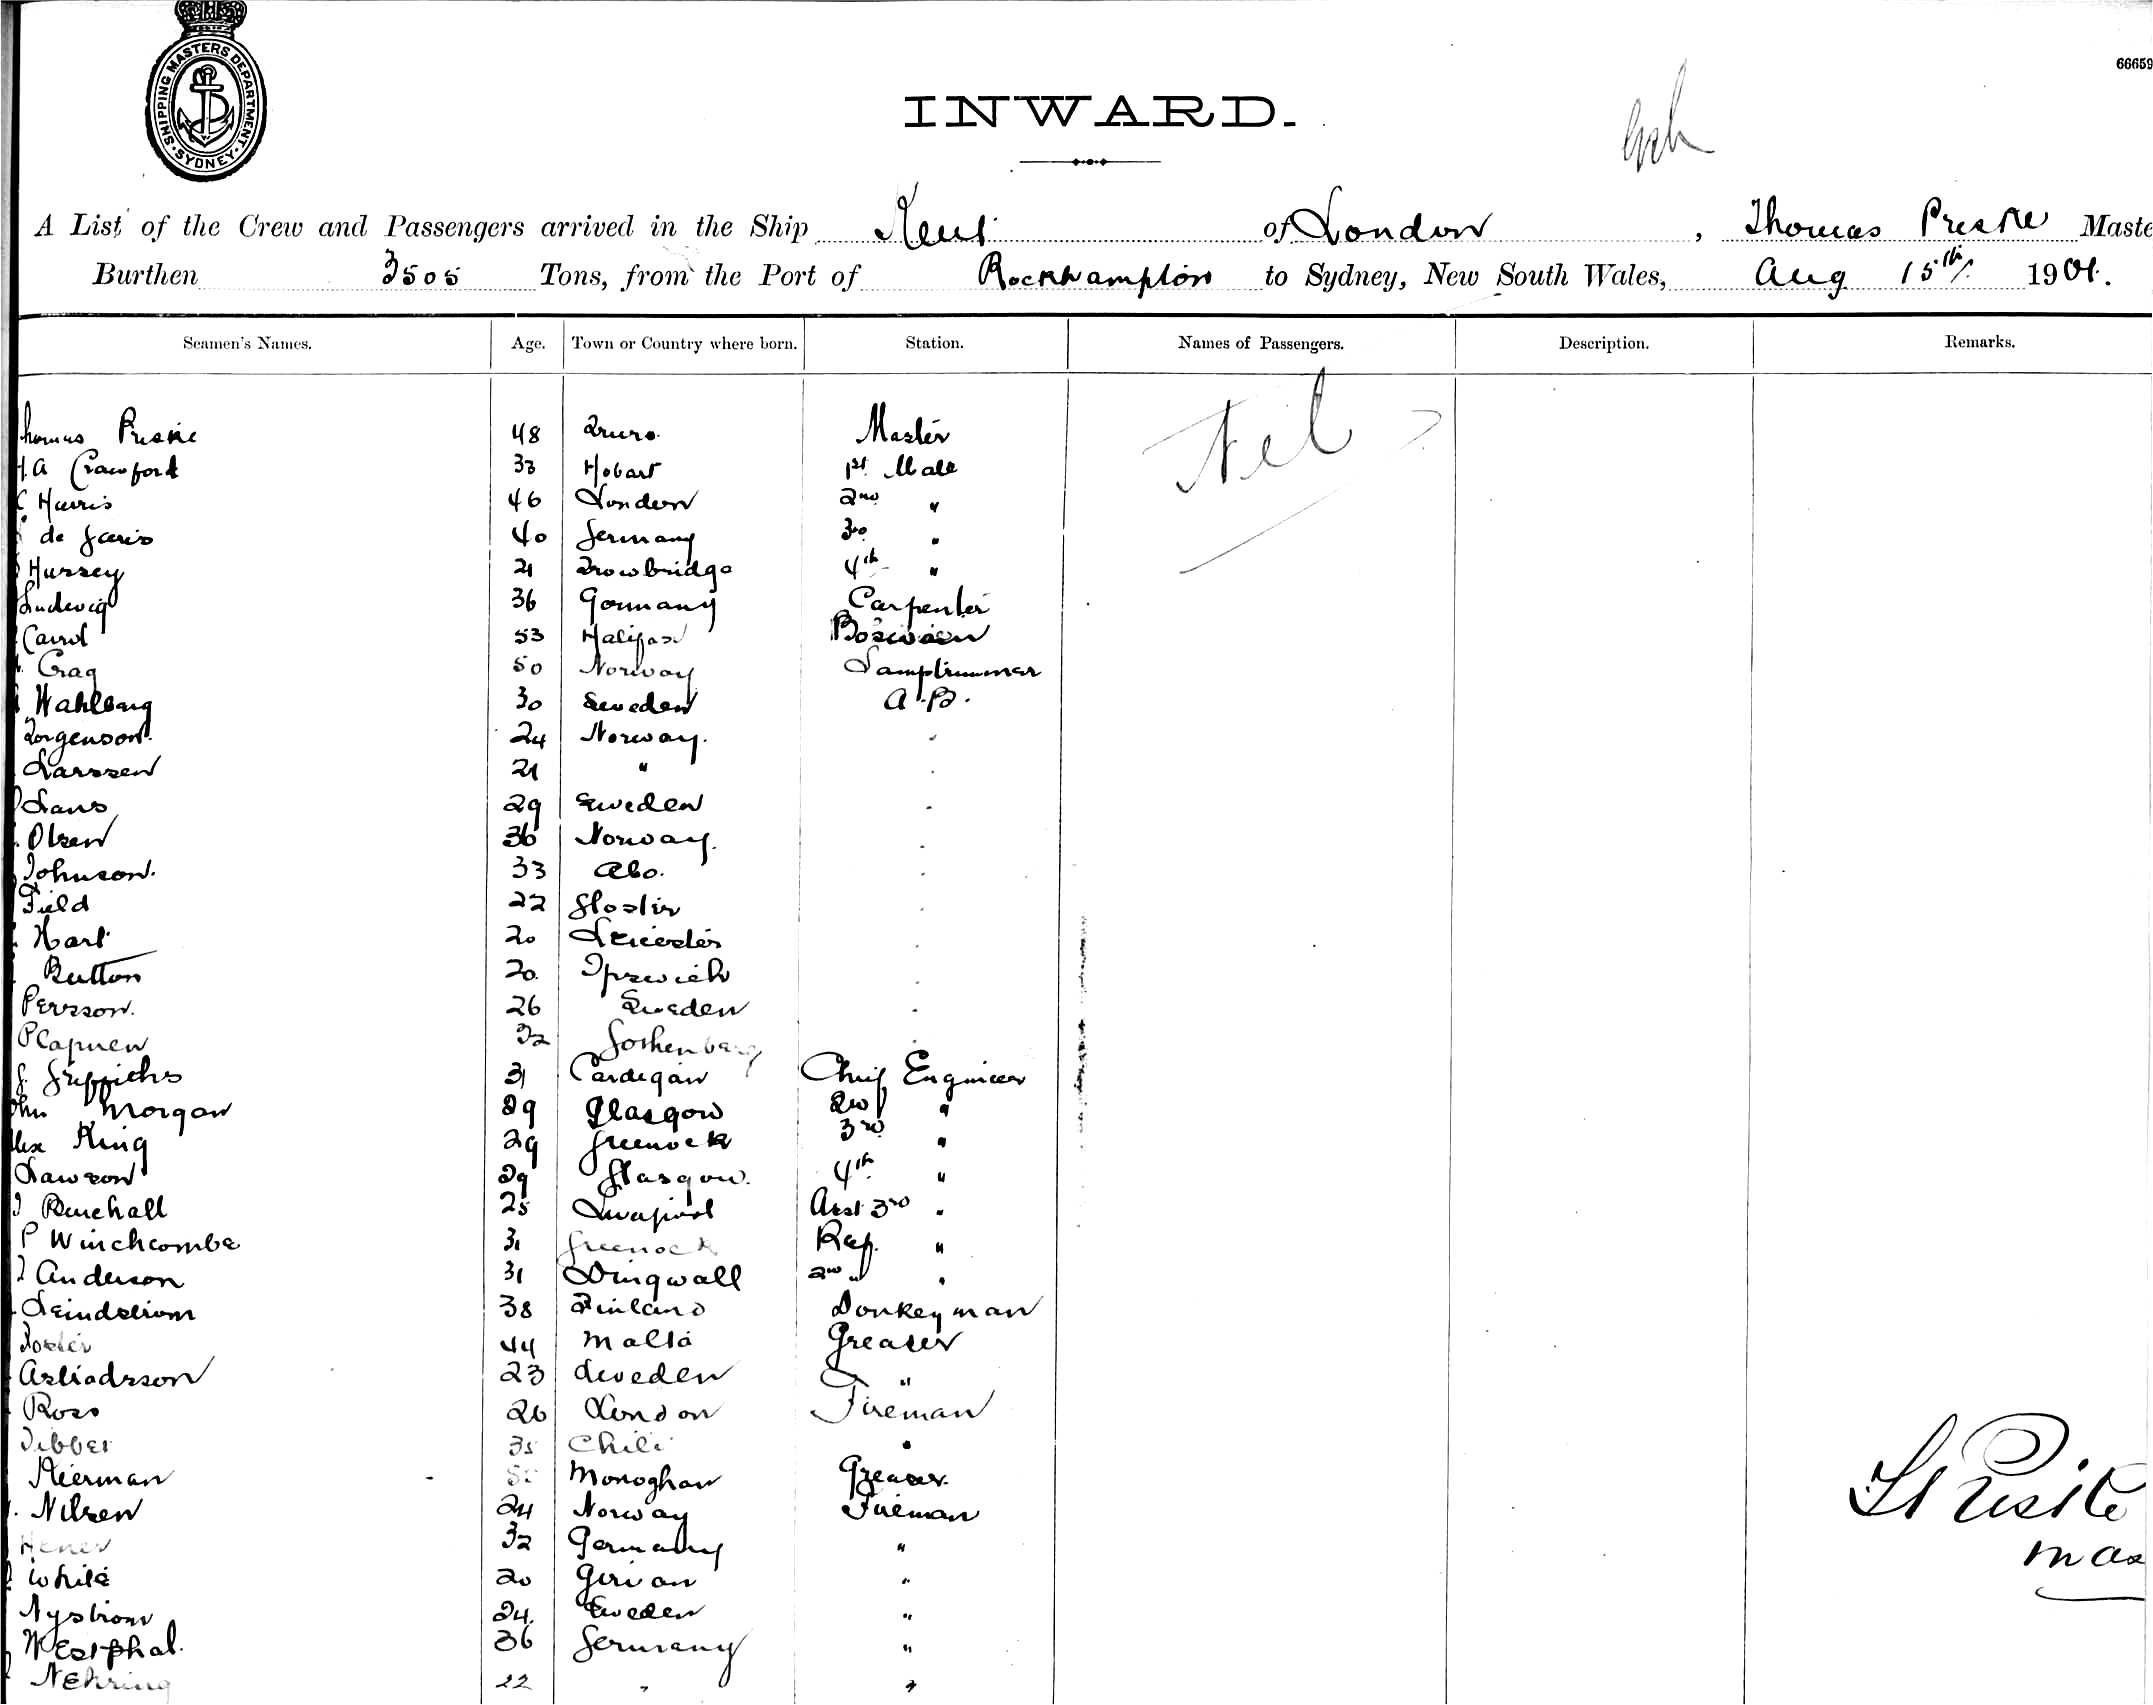 SHIPPING MASTERS DEPARTMENT
SYDNEY
66659
INWARD.
A List of the Crew and Passengers arrived in the Ship Kent of London, Thomas Preske Maste
Burthen 3505 Tons, from the Port of Rockhampton to Sydney, New South Wales, Aug 15th 1901.
Seamen's Names. Age. Town or Country where born. Station. Names of Passengers. Description. Remarks.
homas 48 Truro. Master Nil
A Crawford 33 Hobart 1st Mate
Harris 46 London 2nd "
de Garis 40 Germany 3rd "
Hussey 21 Trowbridge 4th "
Ludewig 36 Germany Carpenter
Carrol 53 Halifax Boswain
Crag 50 Norway Lamptrimmer
Wahlberg 30 Sweden A.B.
Jorgenson. 24 Norway. "
Larssen 21 " "
Lans 29 Sweden "
Olsen 36 Norway. "
Johnson. 33 Abo. "
Field 22 Gloster "
Hart 20 Leicester "
Button 20. Ipswich "
Persson. 26 Sweden "
32 "
J. Griffiths 31 Cardigan Chief Engineer
ohn Morgan 29 Glasgow 2nd "
lex King 29 Greenock 3rd "
Lawson 29 Glasgow. 4th "
Burchall 25 Liverpool Asst 3rd "
P Winchcombe 31 Greenock Ref. "
J Anderson 31 Dingwall 2nd " "
Leindstrom 38 Finland Donkeyman
Foster 44 Malta Greaser
23 Sweden "
Ross 26 London Fireman
Tibbes 35 Chili "
Kierman Monoghan Greaser.
Nilsen 24 Norway Fireman
32 Germany "
White 20 Girvan "
Nystrom 24. Sweden "
Westphal. 36 Germany "
Nehring 22 " "
mas